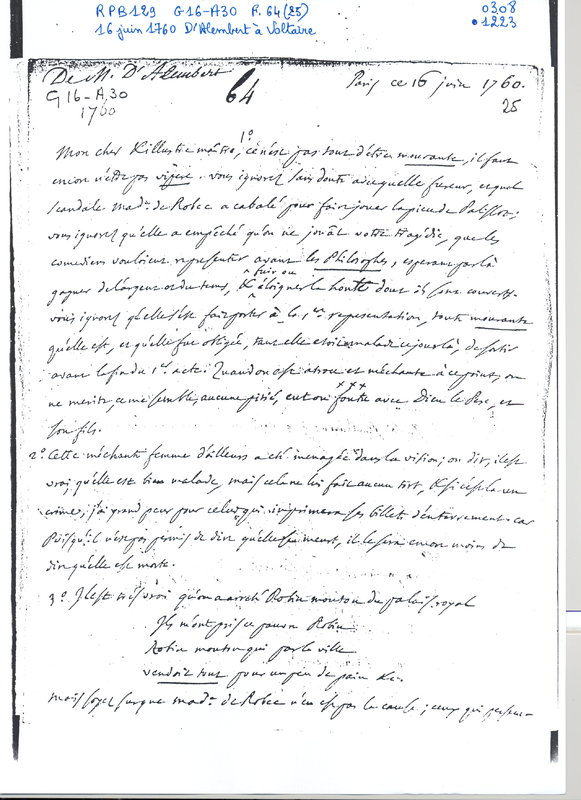 RPB129 G16-A30 F. 64 (25)
16 juin 1760 D'Alembert à Voltaire
0308
•1223
De M. D'Alembert
G 16 - A, 30
1760
64
Paris ce 16 juin 1760.
25
1°
Mon cher & illustre maître, ce n'est pas tout d'être mourante, il faut
encor n'être pas vipere. vous ignorés sans doute avec quelle fureur, et quel
scandale mad.e de Robec a cabalé pour faire jouer la piece de Palissot;
vous ignorés qu'elle a empêché qu'on ne jouât votre tragédie, que les
comediens vouloient representer avant les Philosophes, esperant par là
gagner de l'argent et du tems, & fuir ou éloigner la honte dont ils sont couverts.
vous ignorés qu'elle s'est fait porter à la 1.re representation, toute mourante
qu'elle est, et qu'elle fut obligée, tant elle etoit malade ce jour là, de sortir
avant la fin du 1.er acte. Quand on est atroce et méchante à ce point, on
ne merite, ce me semble, aucune pitié, eut on f xxx avec Dieu le Pere, et
son fils.
2° Cette méchante femme d'ailleurs a été menagée dans la vision; on dit, il est
vrai, qu'elle est bien malade, mais cela ne lui fait aucun tort, & si c'est là un
crime, j'ai grand peur pour celui qui imprimera ses billets d'enterrement. car
Puisqu'il n'est pas permis de dire qu'elle se meurt, il le sera encor moins de
dire qu'elle est morte.
3° Il est très vrai qu'on a arrêté Robin mouton du palais royal
Ils m'ont pris ce pauvre Robin
Robin mouton qui par la ville
vendoit tout pour un peu de pain &c.
Mais soyés sur que mad.e de Robec n'en est pas la cause; ceux qui